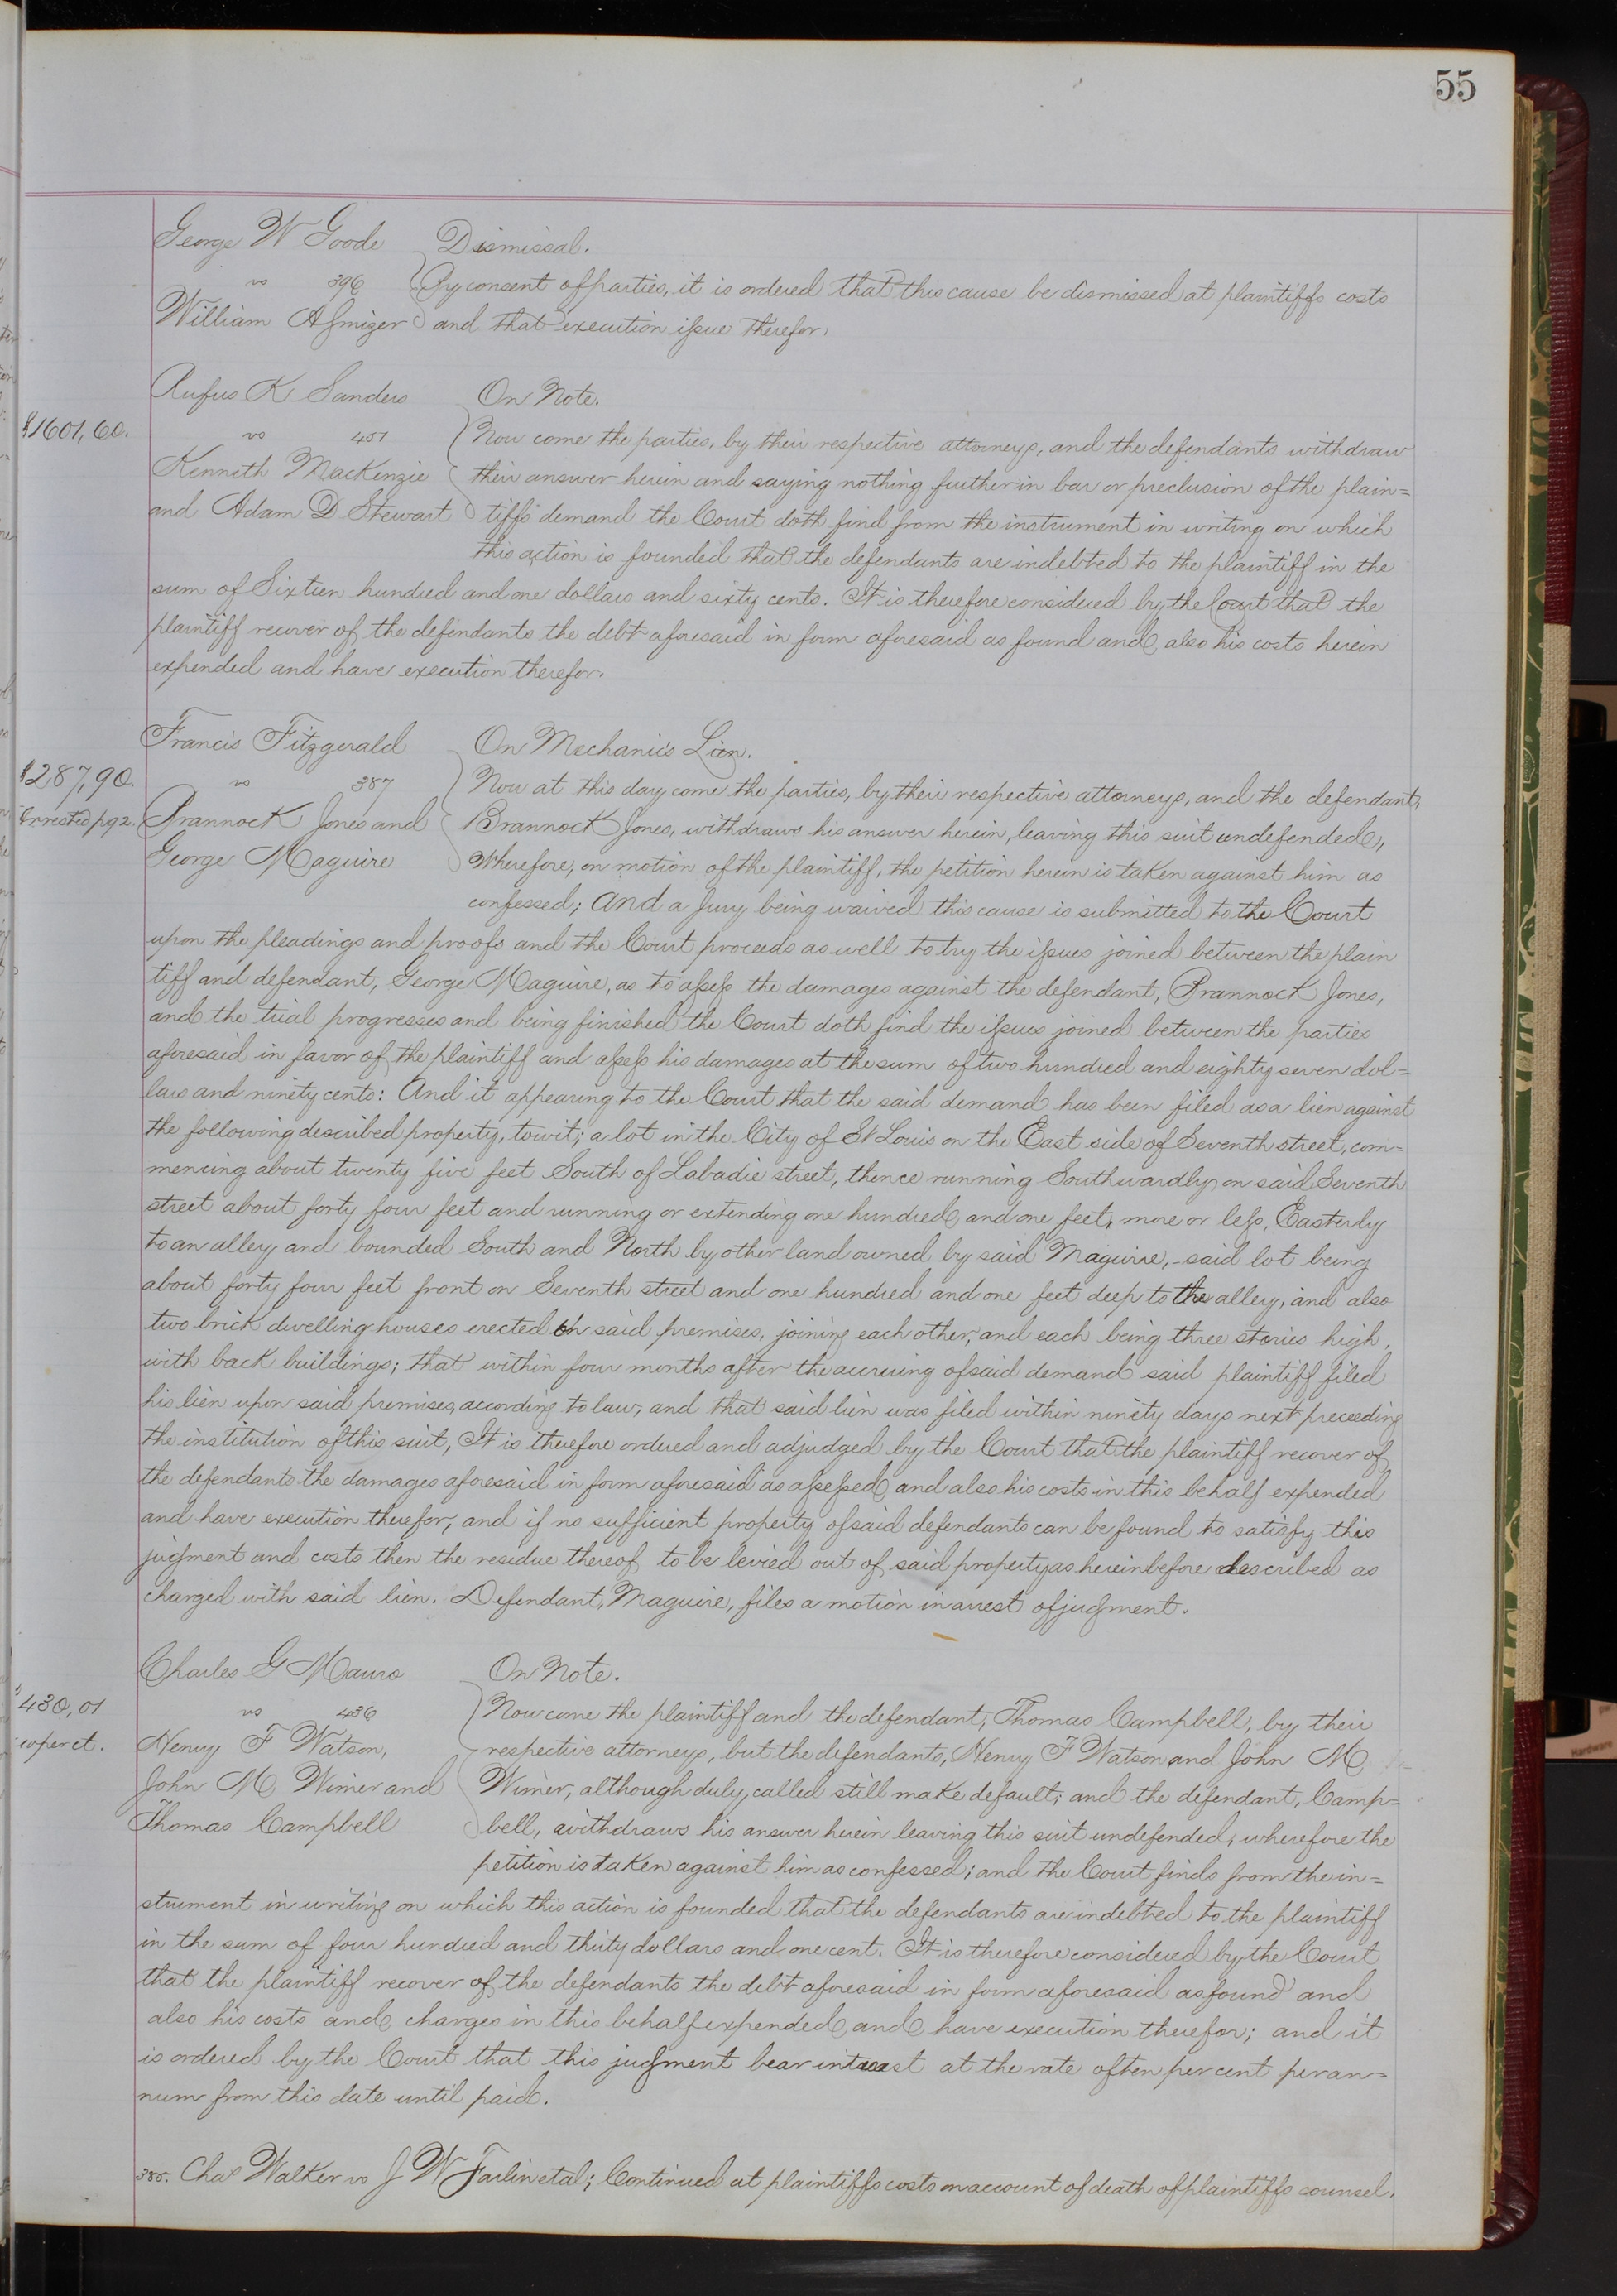 55
George W Goode Dismissal.
vs 396 By consent of parties, it is ordered that this cause be dismissed at plaintiffs costs
William and that execution issue therefor.
Rufus K Sanders On Note.
$1601,60. vs 401 Now come the parties, by their respective attorneys, and the defendants withdraw
Kennith MacKenzie their answer herein and saying nothing further in bar or preclusion of the plain=
and Adam D Stewart tiffs demand the Court doth find from the instrument in writing on which
this action is founded that the defendants are indebted to the plaintiff in the
sum of Sixteen hundred and one dollars and sixty cents. It is therefore considered by the Court that the
plaintiff recover of the defendants the debt aforesaid in form aforesaid as found and also his costs herein
expended and have execution therefor.
Francis Fitzgerald On Mechanics Lien.
$287,90. vs 387 Now at this day come the parties, by their respective attorneys, and the defendant,
Arrested pg 2. Brannock Jones and Brannock Jones, withdraws his answer herein, leaving this suit undefended,
George Maguire Wherefore, on motion of the plaintiff, the petition herein is taken against him as
confessed; and a Jury being waived this cause is submitted to the Court
upon the pleadings and proofs and the Court proceeds as well to try the issues joined between the plain
tiff and defendant, George Maguire, as to assess the damages against the defendant, Brannock Jones,
and the trial progresses and being finished the Court doth find the issues joined between the parties
aforesaid in favor of the plaintiff and assess his damages at the sum of two hundred and eighty seven dol=
lars and ninety cents: And it appearing to the Court that the said demand has been filed as a lien against
the following described property, towit; a lot in the City of St Louis on the East side of Seventh street, com=
mencing about twenty five feet South of Labadie street, thence running Southwardly on said Seventh
street about forty four feet and running or extending one hundred and one feet, more or less, Easterly
to an alley and bounded South and North by other land owned by said Maguire, - said lot being
about forty four feet front on Seventh street and one hundred and one feet deep to the alley, and also
two brick dwelling houses erected on said premises, joining each other, and each being three stories high,
with back buildings; that within four months after the accruing of said demand said plaintiff filed
his lien upon said premises, according to law, and that said lien was filed within ninety days next preceeding
the institution of this suit, It is therefore ordered and adjudged by the Court that the plaintiff recover of
the defendants the damages aforesaid in form aforesaid as assessed and also his costs in this behalf expended
and have execution therefor, and if no sufficient property of said defendants can be found to satisfy this
judgment and costs then the residue thereof to be levied out of said property as hereinbefore described as
charged with said lien. Defendant, Maguire, files a motion in arrest of judgment.
Charles G Mauro On Note.
430,01 vs 436 Now come the plaintiff and the defendant, Thomas Campbell, by their
10 per ct. Henry F Watson, respective attorneys, but the defendants, Henry F Watson and John M
John M Wimer and Wimer, although duly called still make default; and the defendant, Camp=
Thomas Campbell bell, withdraws his answer herein leaving this suit undefended, wherefore the
petition is taken against him as confessed; and the Court finds from the in=
strument in writing on which this action is founded that the defendants are indebted to the plaintiff
in the sum of four hundred and thirty dollars and one cent. It is therefore considered by the Court
that the plaintiff recover of the defendants the debt aforesaid in form aforesaid as found and
also his costs and charges in this behalf expended and have execution therefor; and it
is ordered by the Court that this judgment bear interest at the rate of ten per cent per an=
num from this date until paid.
385. Chas Walker vs J W Farlin et al; Continued at plaintiffs costs on account of death of plaintiffs counsel.